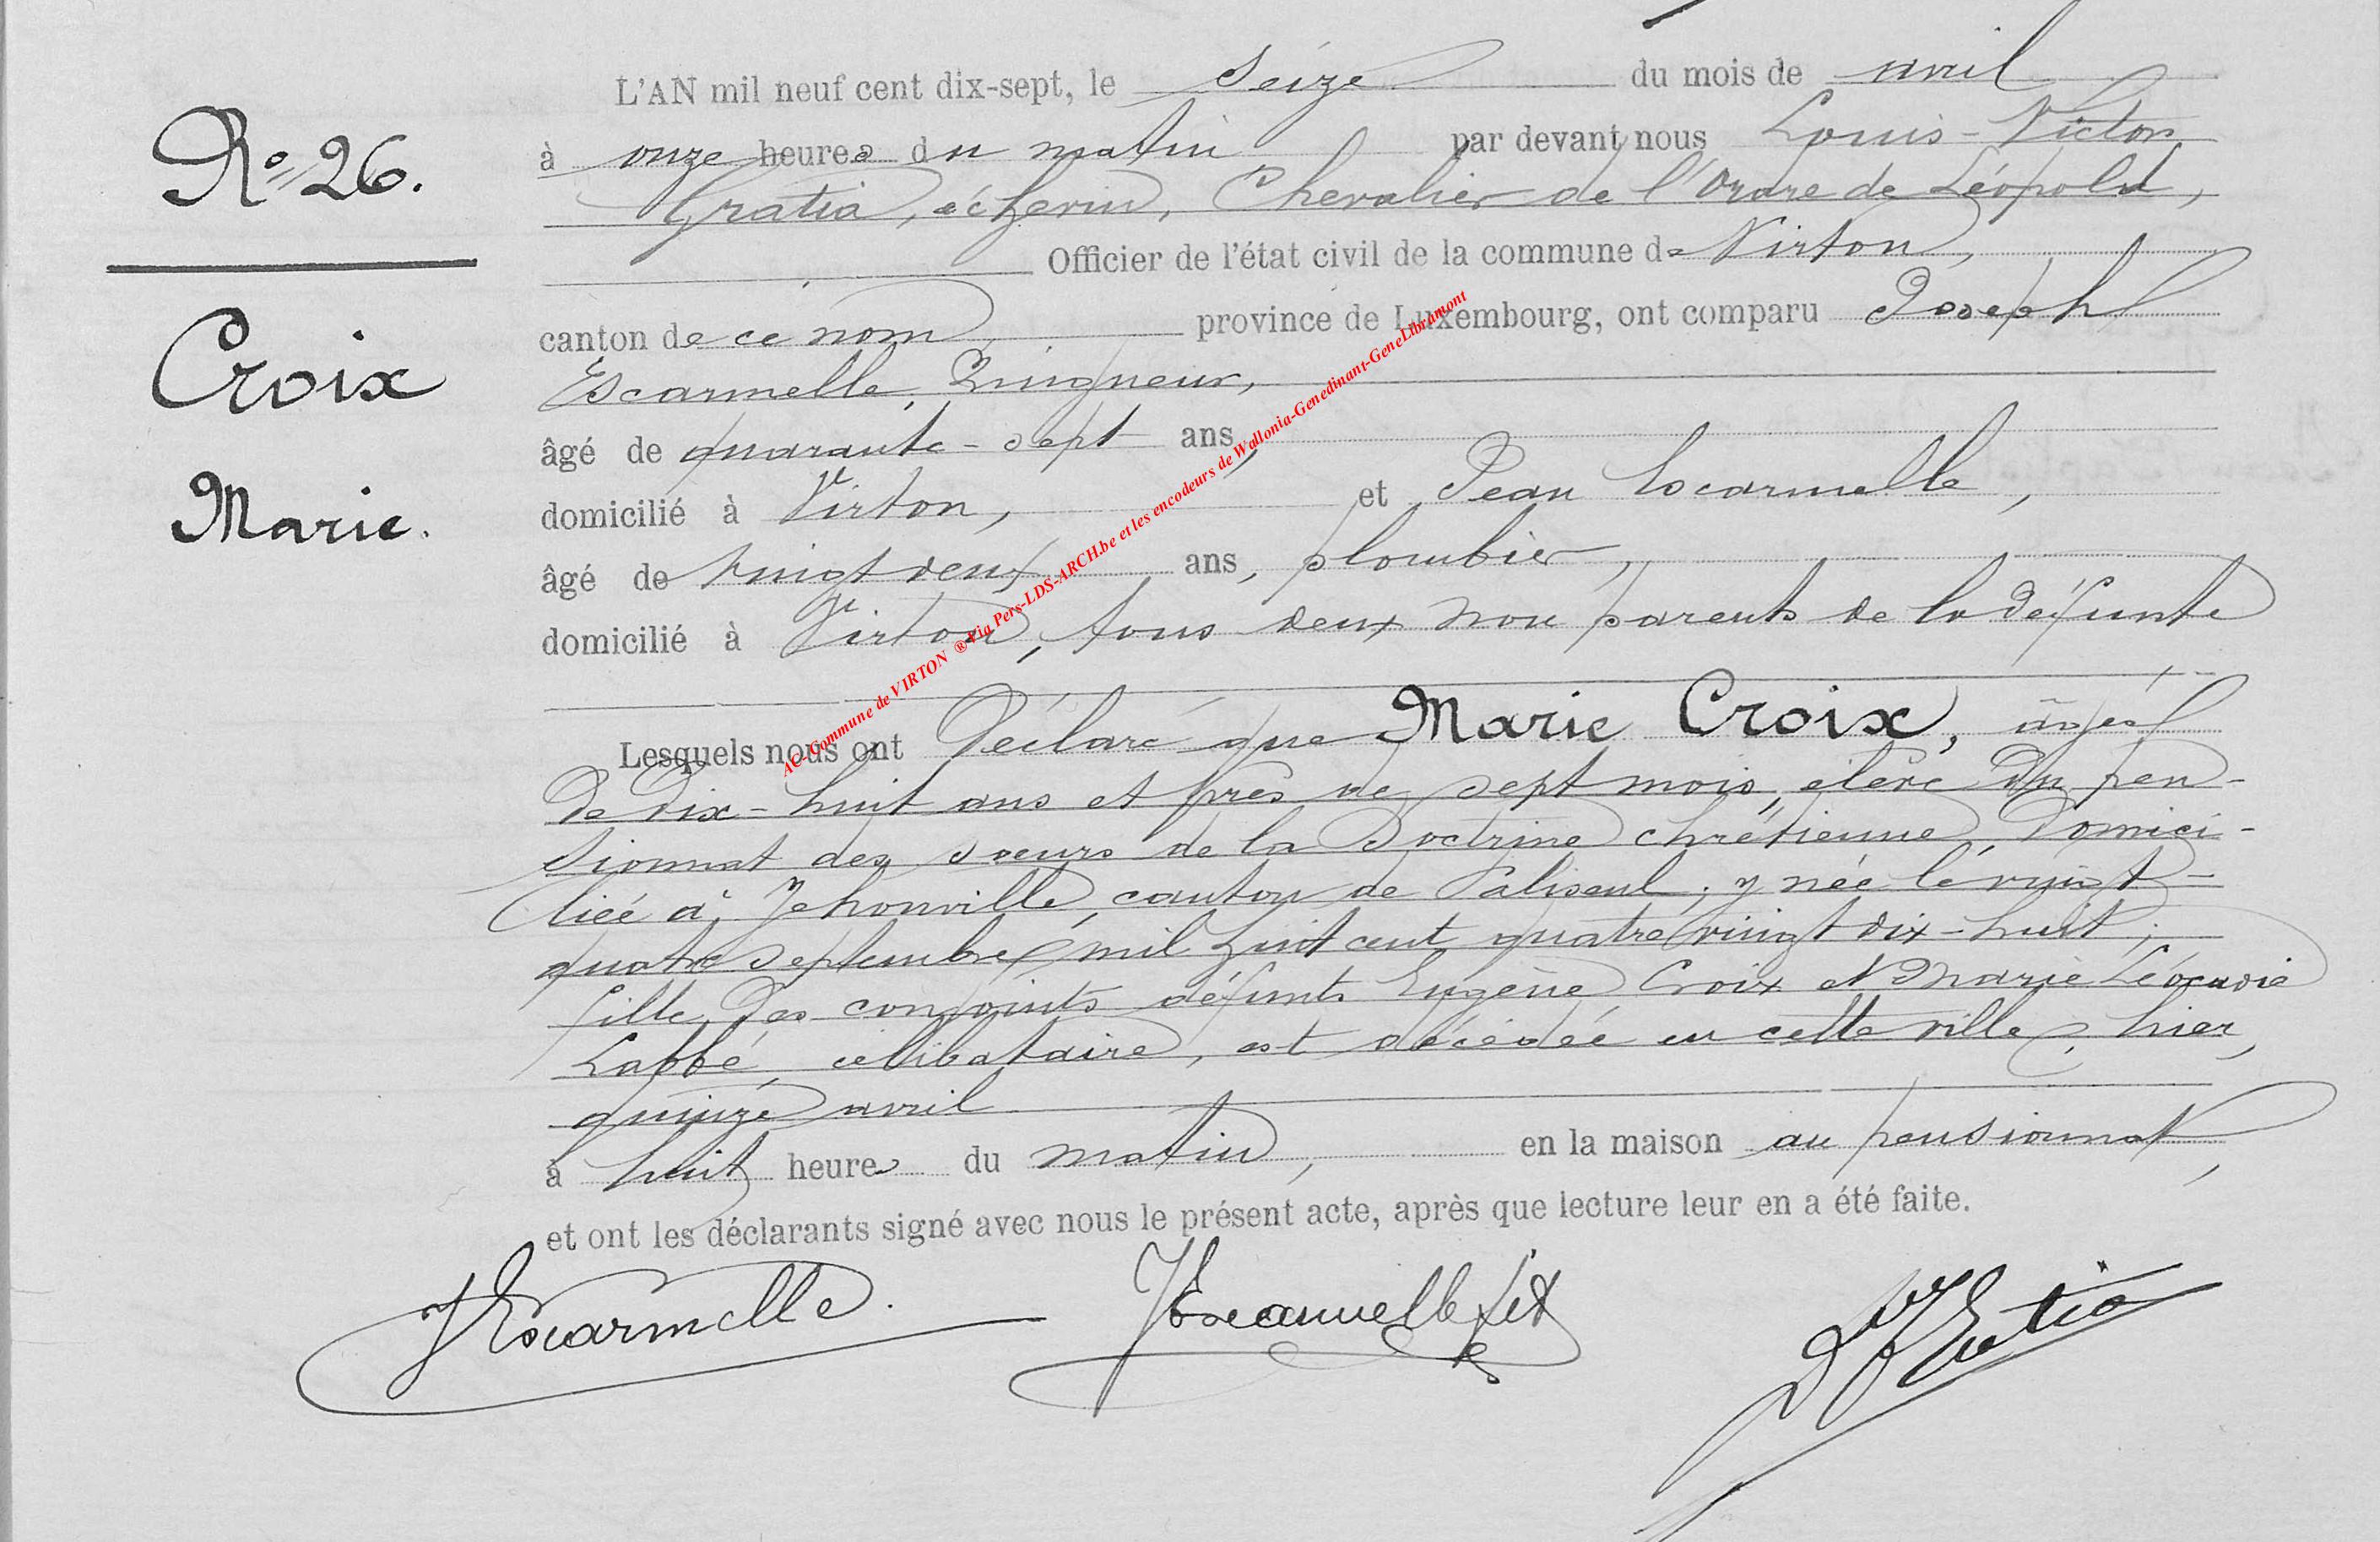 L'AN mil neuf cent dix-sept, le seize du mois de avril
à onze heures du matin par devant nous Louis-Victor
Gratia, échevin, Chevalier de l'Ordre de Léopold,
Officier de l'état civil de la commune de Virton,
canton de ce nom, province de Luxembourg, ont comparu Joseph
Escarmelle, Zingueur,
âgé de quarante-sept ans,
domicilié à Virton, et Jean Escarmelle,
âgé de vingt deux ans, plombier,
domicilié à Virton, tous deux non parents de la défunte
Lesquels nous ont Déclaré que Marie Croix, âgée
de dix-huit ans et près de sept mois, élève du pen-
sionnat des soeurs de la Doctrine chrétienne, domici-
liée à Jehonville, canton de Paliseul, y née le vingt-
quatre septembre mil huit cent quatre vingt dix-huit,
fille des conjoints défunts Eugène Croix et Marie Léocadie
Labbé, célibataire, est décédée en cette ville, hier,
quinze avril
à huit heures du matin, en la maison au pensionnat,
et ont les déclarants signé avec nous le présent acte, après que lecture leur en a été faite.
No 26.
Croix
Marie.
JEscarmelle.
JEscarmelle fils
LVGratia
AC-Commune de VIRTON ® Via Pers-LDS-ARCH.be et les encodeurs de Wallonia-Genedinant-GeneLibramont